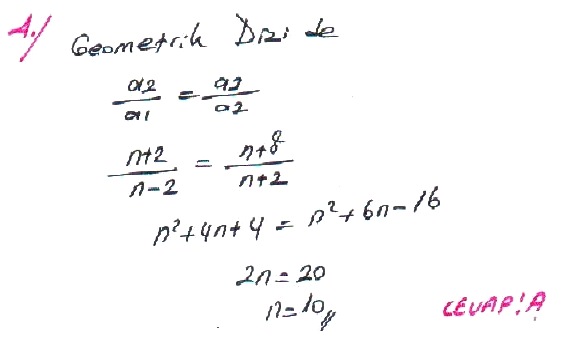 A./ Geometrik Dizi de
a2/a1 = a3/a2
n+2/n-2 = n+8/n+2
n²+4n+4 = n²+6n-16
2n=20
n=10//
CEVAP!A